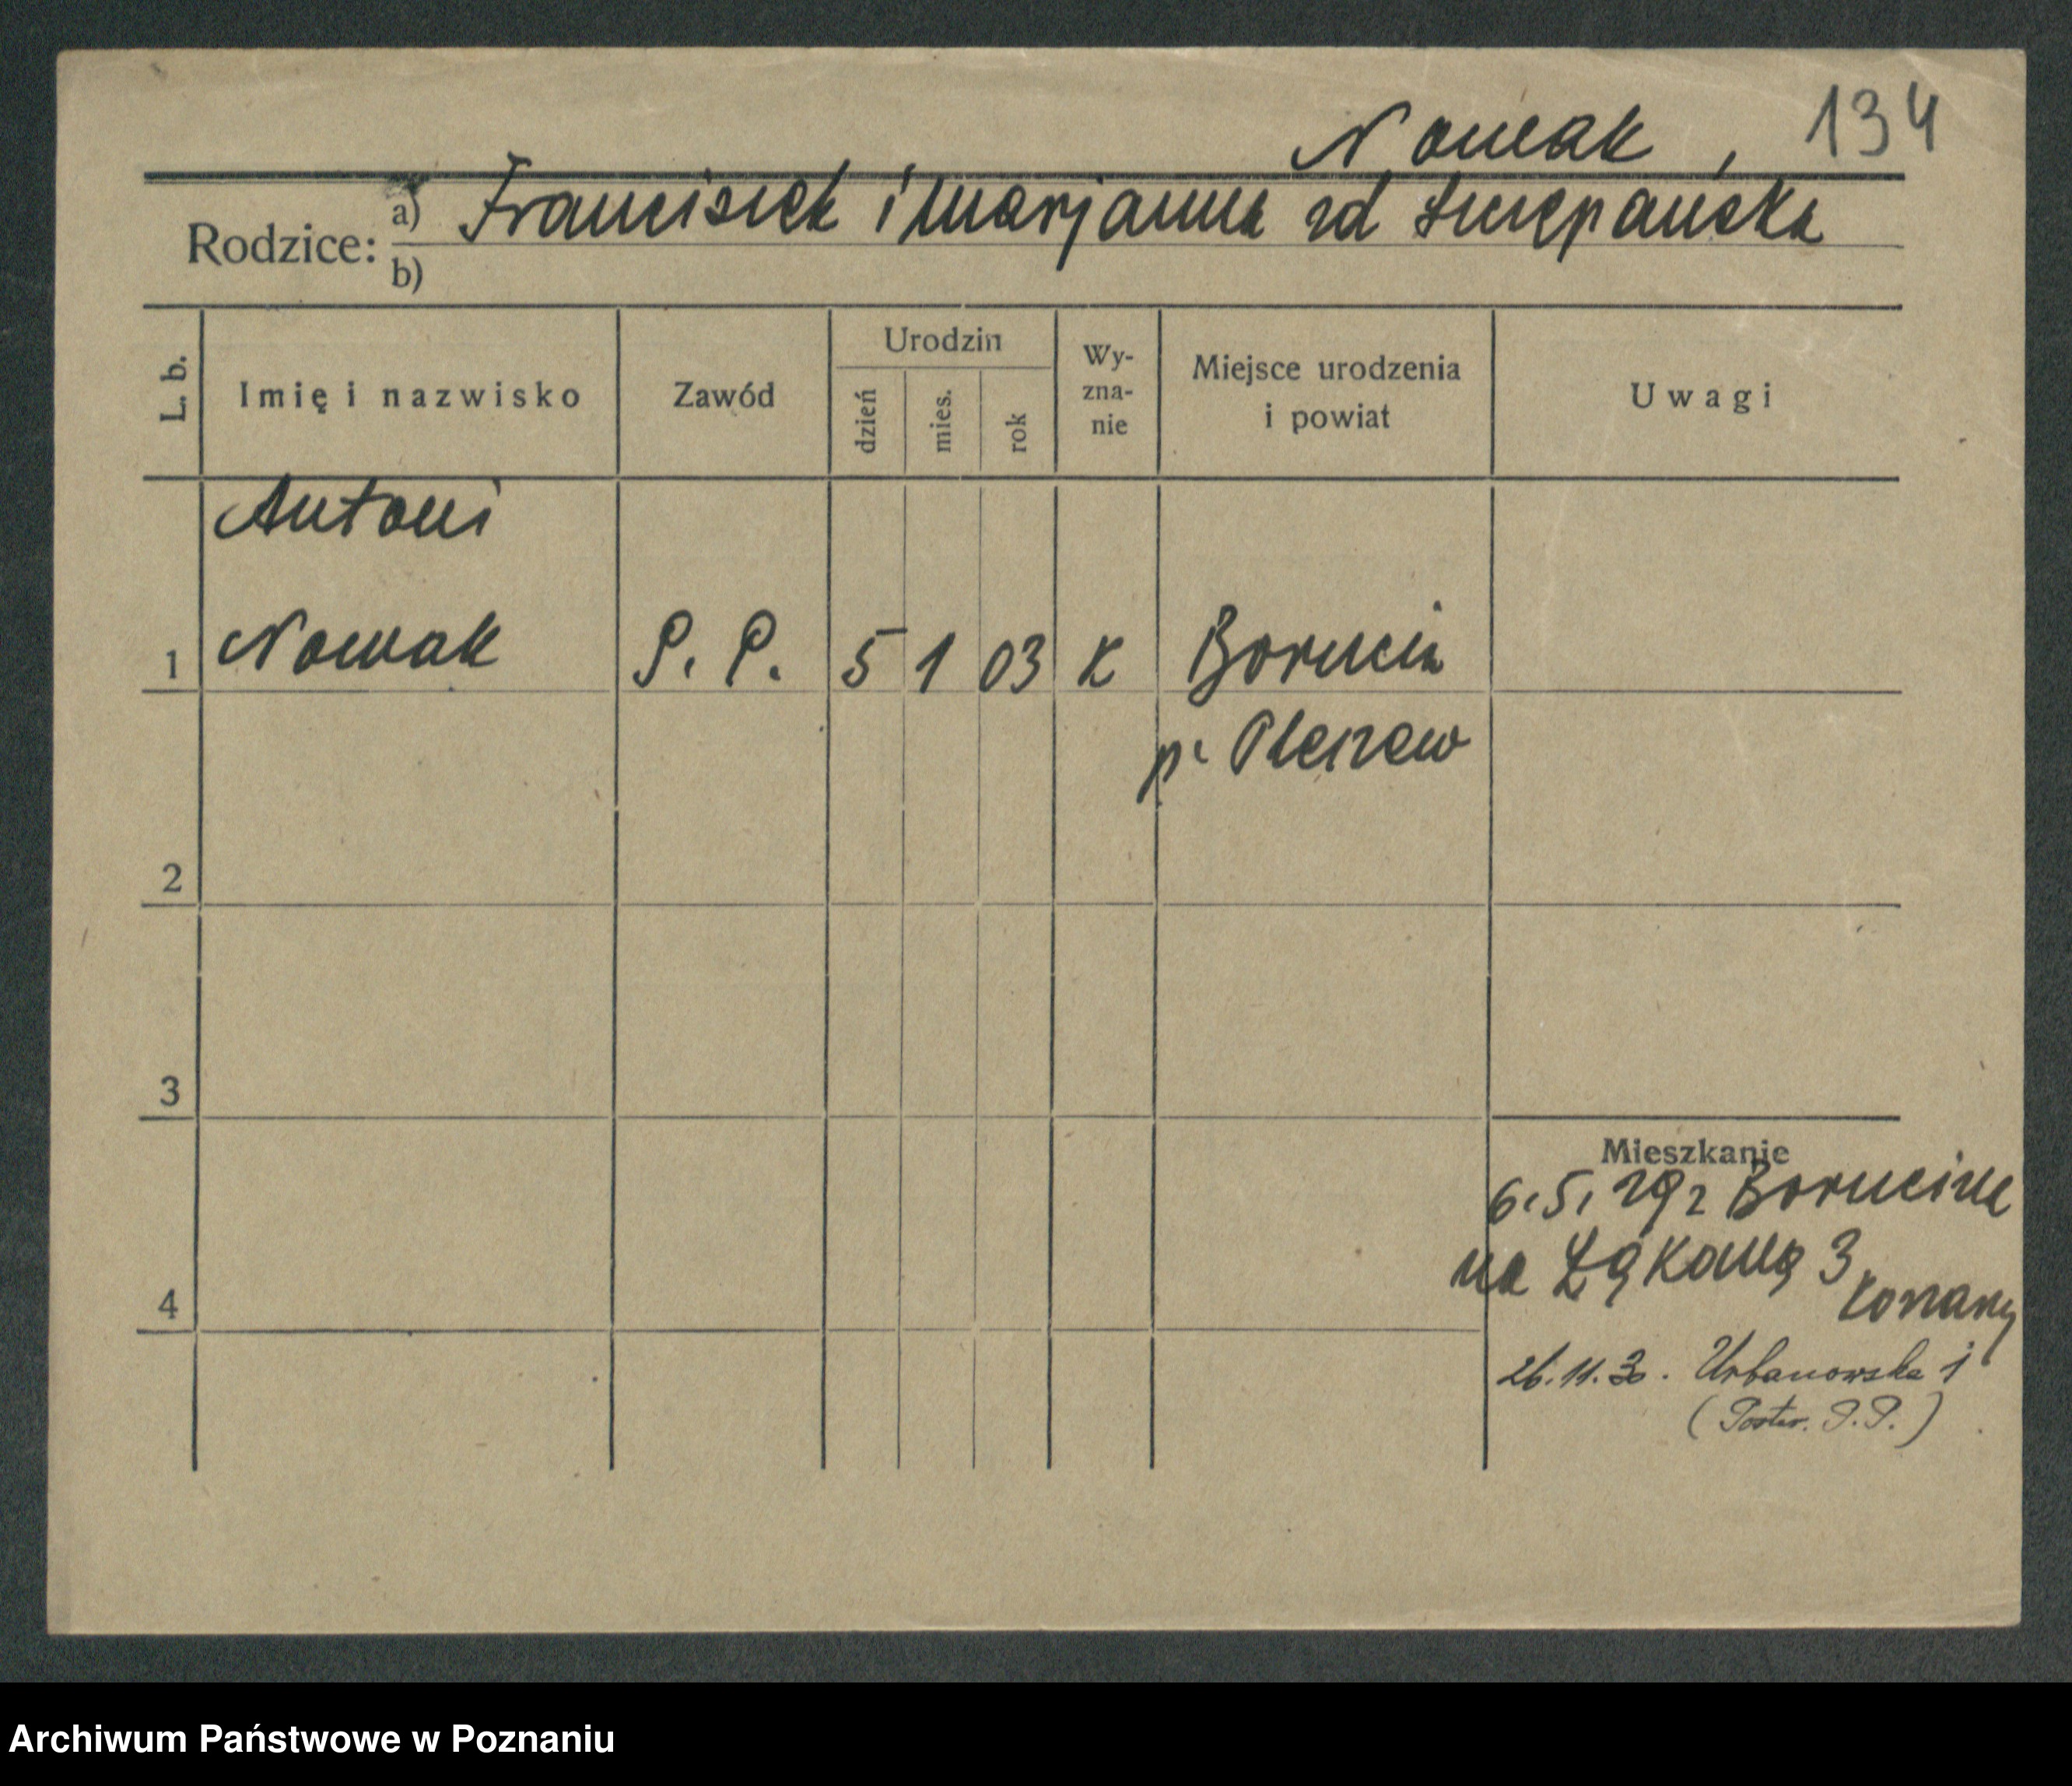 Nowak, 134
Rodzice: a) Franciszek i Marjanna zd Szczepańska
b)
L. b. Imię i nazwisko Zawód Urodzin dzień mies. rok Wy-zna-nie Miejsce urodzenia i powiat Uwagi
Antoni
1 Nowak P. P. 5 1 03 K Borucin
p. Pleszew
2
3
Mieszkanie
6.5.29 z Borucina
na Łąkową 3
4
Koszary
26.11.30. Urbanowska 1
(Poster. P.P.)
Archiwum Państwowe w Poznaniu